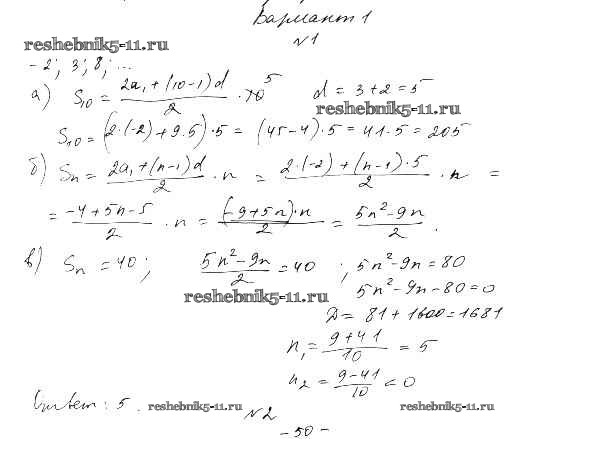 Вариант 1
reshebnik5-11.ru
№1
-2; 3; 8; ...
а) S₁₀ = (2a₁ + (10-1)d)/2 · 10 5 d = 3+2=5
reshebnik5-11.ru
S₁₀ = (2·(-2) + 9·5)·5 = (45-4)·5 = 41·5 = 205
б) Sₙ = (2a₁ + (n-1)d)/2 · n = (2·(-2) + (n-1)·5)/2 · n =
= (-4+5n-5)/2 · n = ((-9+5n)·n)/2 = (5n²-9n)/2.
в) Sₙ = 40; (5n²-9n)/2 = 40; 5n²-9n = 80
reshebnik5-11.ru 5n²-9n-80=0
D = 81+1600=1681
n₁ = (9+41)/10 = 5
n₂ = (9-41)/10 < 0
Ответ: 5. reshebnik5-11.ru reshebnik5-11.ru
№2
-50-